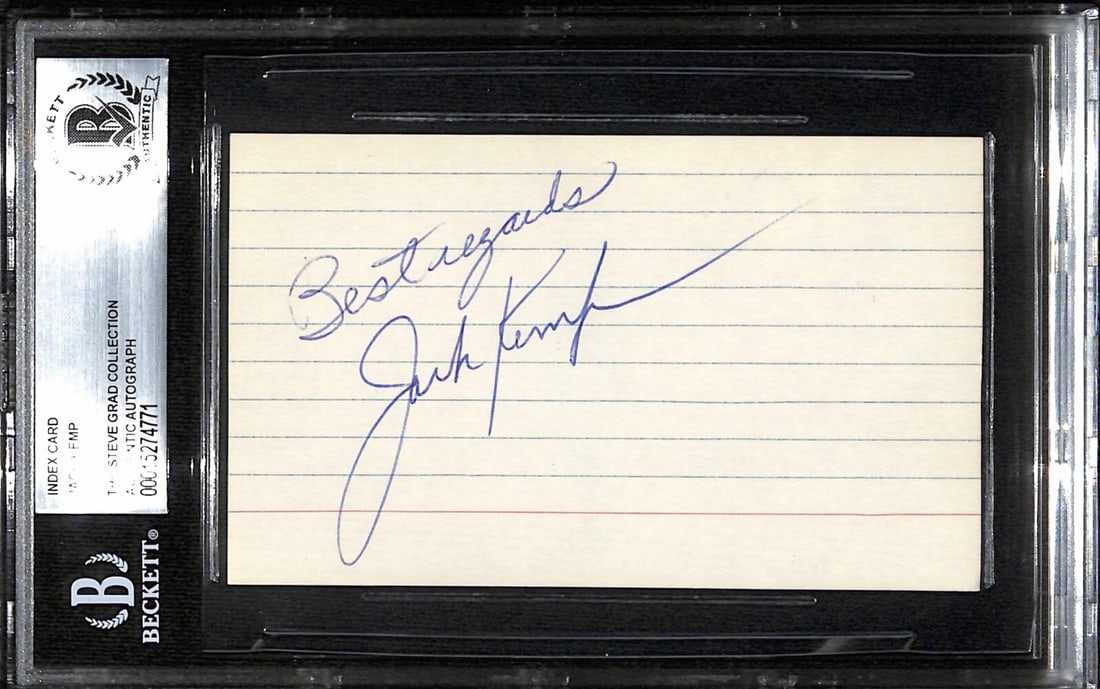 BECKETT
B
AUTHENTIC
INDEX CARD
THE STEVE GRAD COLLECTION
AUTHENTIC AUTOGRAPH
00015274771
B
BECKETT®
Best regards
Jack Kemp